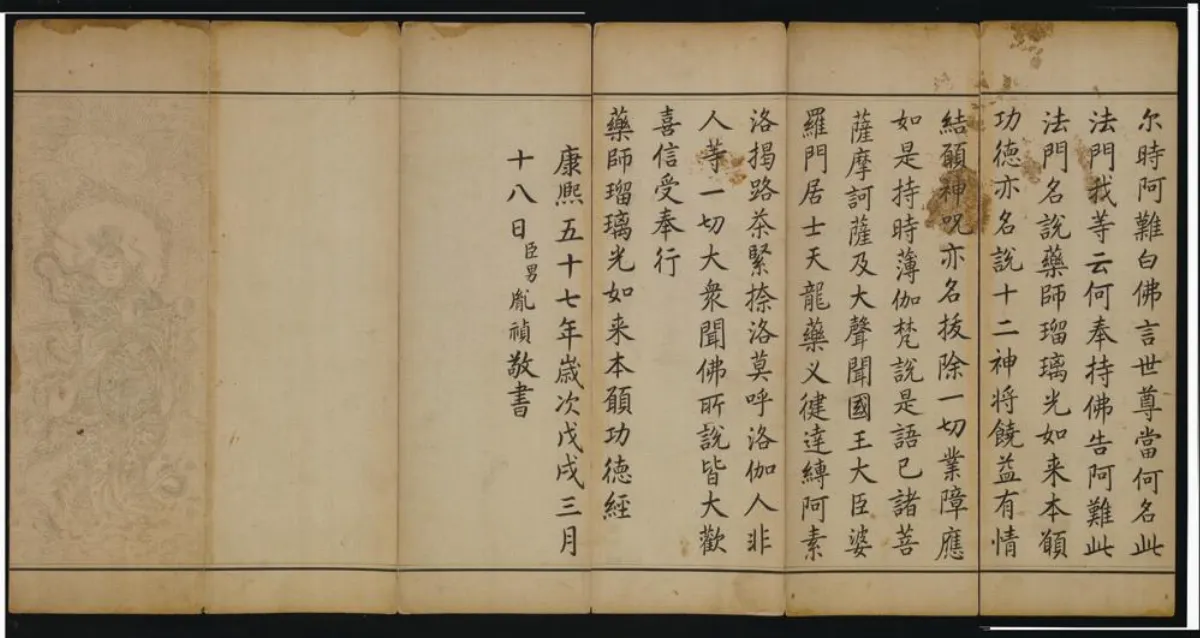 尔時阿難白佛言世尊當何名此
法門我等云何奉持佛告阿難此
法門名說藥師瑠璃光如来本願
功德亦名說十二神将饒益有情
結願神呪亦名拔除一切業障應
如是持時薄伽梵說是語已諸菩
薩摩訶薩及大聲聞國王大臣婆
羅門居士天龍藥义徤達縛阿素
洛揭路茶緊捺洛莫呼洛伽人非
人等一切大衆聞佛所說皆大歡
喜信受奉行
藥師瑠璃光如来本願功德經
康熙五十七年歲次戊戌三月
十八日臣男胤禎敬書